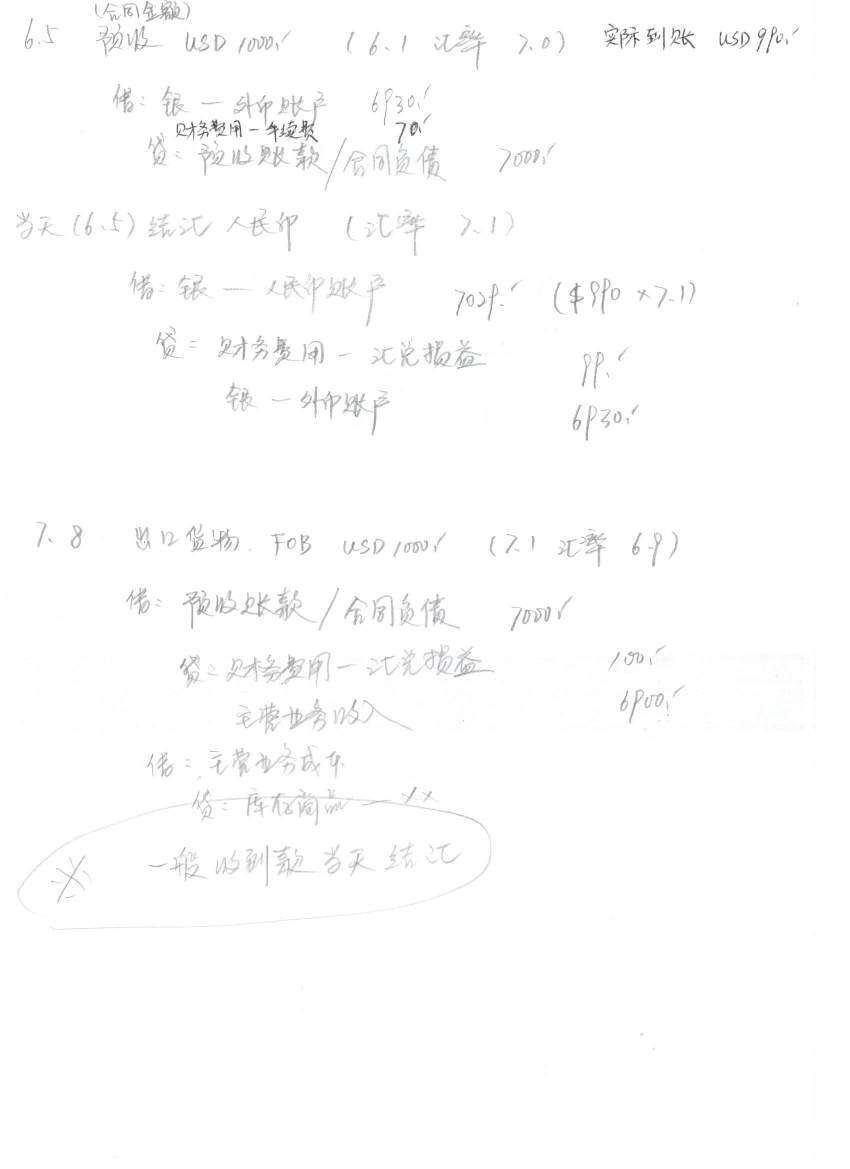 (合同金额)
6.5 预收 USD 1000.- (6.1 汇率 7.0) 实际到账 USD 990.-
借: 银 — 外币账户 6930.-
财务费用 — 手续费 70.-
贷: 预收账款/合同负债 7000.-
当天(6.5) 结汇 人民币 (汇率 7.1)
借: 银 — 人民币账户 7029.- ($990 × 7.1)
贷: 财务费用 — 汇兑损益 99.-
银 — 外币账户 6930.-
7.8 出口货物. FOB USD 1000.- (7.1 汇率 6.9)
借: 预收账款/合同负债 7000.-
贷: 财务费用 — 汇兑损益 100.-
主营业务收入 6900.-
借: 主营业务成本
贷: 库存商品 — ××
※ 一般收到款当天结汇